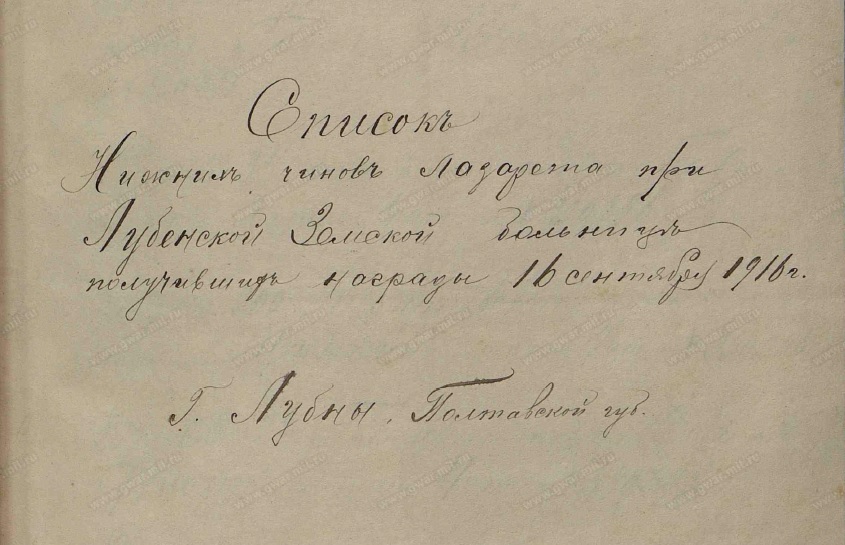 Списокъ
Нижнимъ чиновъ Лазарета при
Лубенской Земской больницѣ
получившихъ награды 16 сентября 1916 г.
Г. Лубны, Полтавской губ.